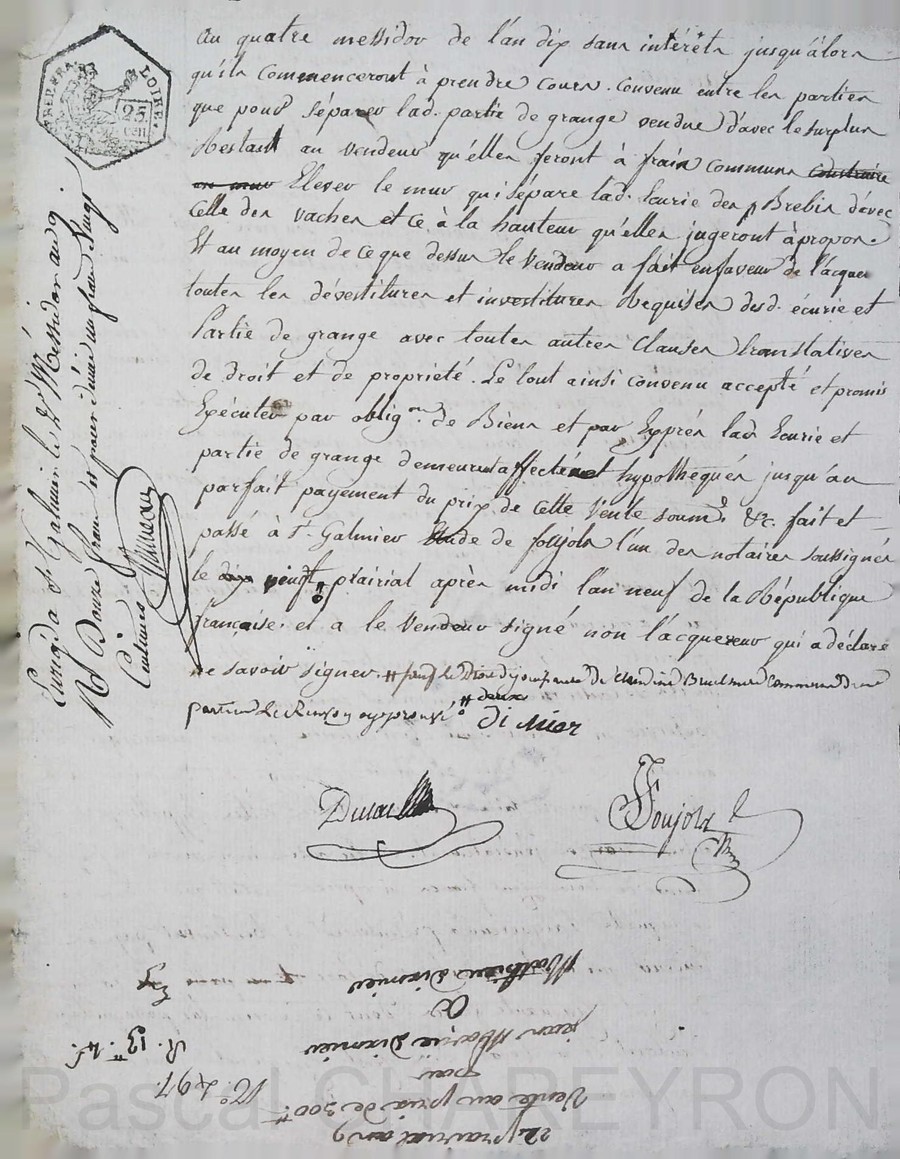 au quatre messidor de l'an dix sans intérêts jusqu'alors
qu'ils commenceront à prendre cours. Convenu entre les parties
que pour séparer lad. partie de grange vendue d'avec le surplus
Restant au vendeur qu'elles feront à frais communs construire
un mur Elever le mur qui sépare lad. Ecurie des Brebis d'avec
celle des vaches et ce à la hauteur qu'elles jugeront àpropos.
Et au moyen de ce que dessus le Vendeur a fait en faveur de l'acquer
toutes les dévestitures et investitures Requises desd. écurie et
Partie de grange avec toutes autres Clauses translatives
de droit et de propriété. Le tout ainsi convenu accepté et promis
Exécuter par oblig.on de Biens et par Exprès lad. Ecurie et
partie de grange demeurent affectés et hypothequés jusqu'au
parfait payement du prix de cette vente soum.s &c. fait et
passé à St. Galmier Etude de foujols l'un des notaires soussignés
le vingt prairial après midi l'an neuf de la République
française. et a le Vendeur signé non l'acquereur qui a déclaré
ne savoir signer.
approuvé
deux
di mier
Foujols
FRAN
LOIRE.
25.
cen
Enreg. à St. Galmier le 4 Messidor an 9.
Rd Douze francs
Centimes
Mathieu Dixmier
A
jean Marie Dixmier
par
Vente au prix de 300tt
22 prairial an 9
No. 497
R. 13
Pascal CHAREYRON